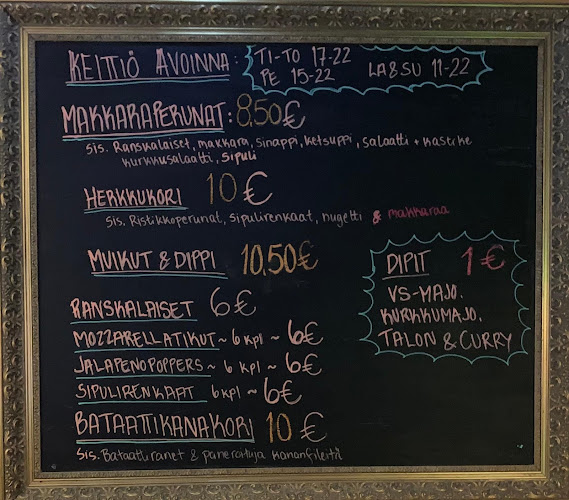 KEITTIÖ AVOINNA: TI-TO 17-22 LA&SU 11-22
PE 15-22
MAKKARAPERUNAT: 8,50€
Sis. Ranskalaiset, makkara, Sinappi, ketsuppi, salaatti + kastike
kurkkusalaatti, sipuli
HERKKUKORI 10€
Sis. Ristikkoperunat, sipulirenkaat, nugetti & makkaraa
MUIKUT & DIPPI 10,50€
DIPIT 1€
VS-MAJO.
KURKKUMAJO.
TALON & CURRY
RANSKALAISET 6€
MOZZARELLATIKUT ~ 6 kpl ~ 6€
JALAPENOPOPPERS ~ 6 kpl ~ 6€
SIPULIRENKAAT 6 kpl ~ 6€
BATAATTIKANAKORI 10€
Sis. Bataattiranet & paneroituja kananfileitä